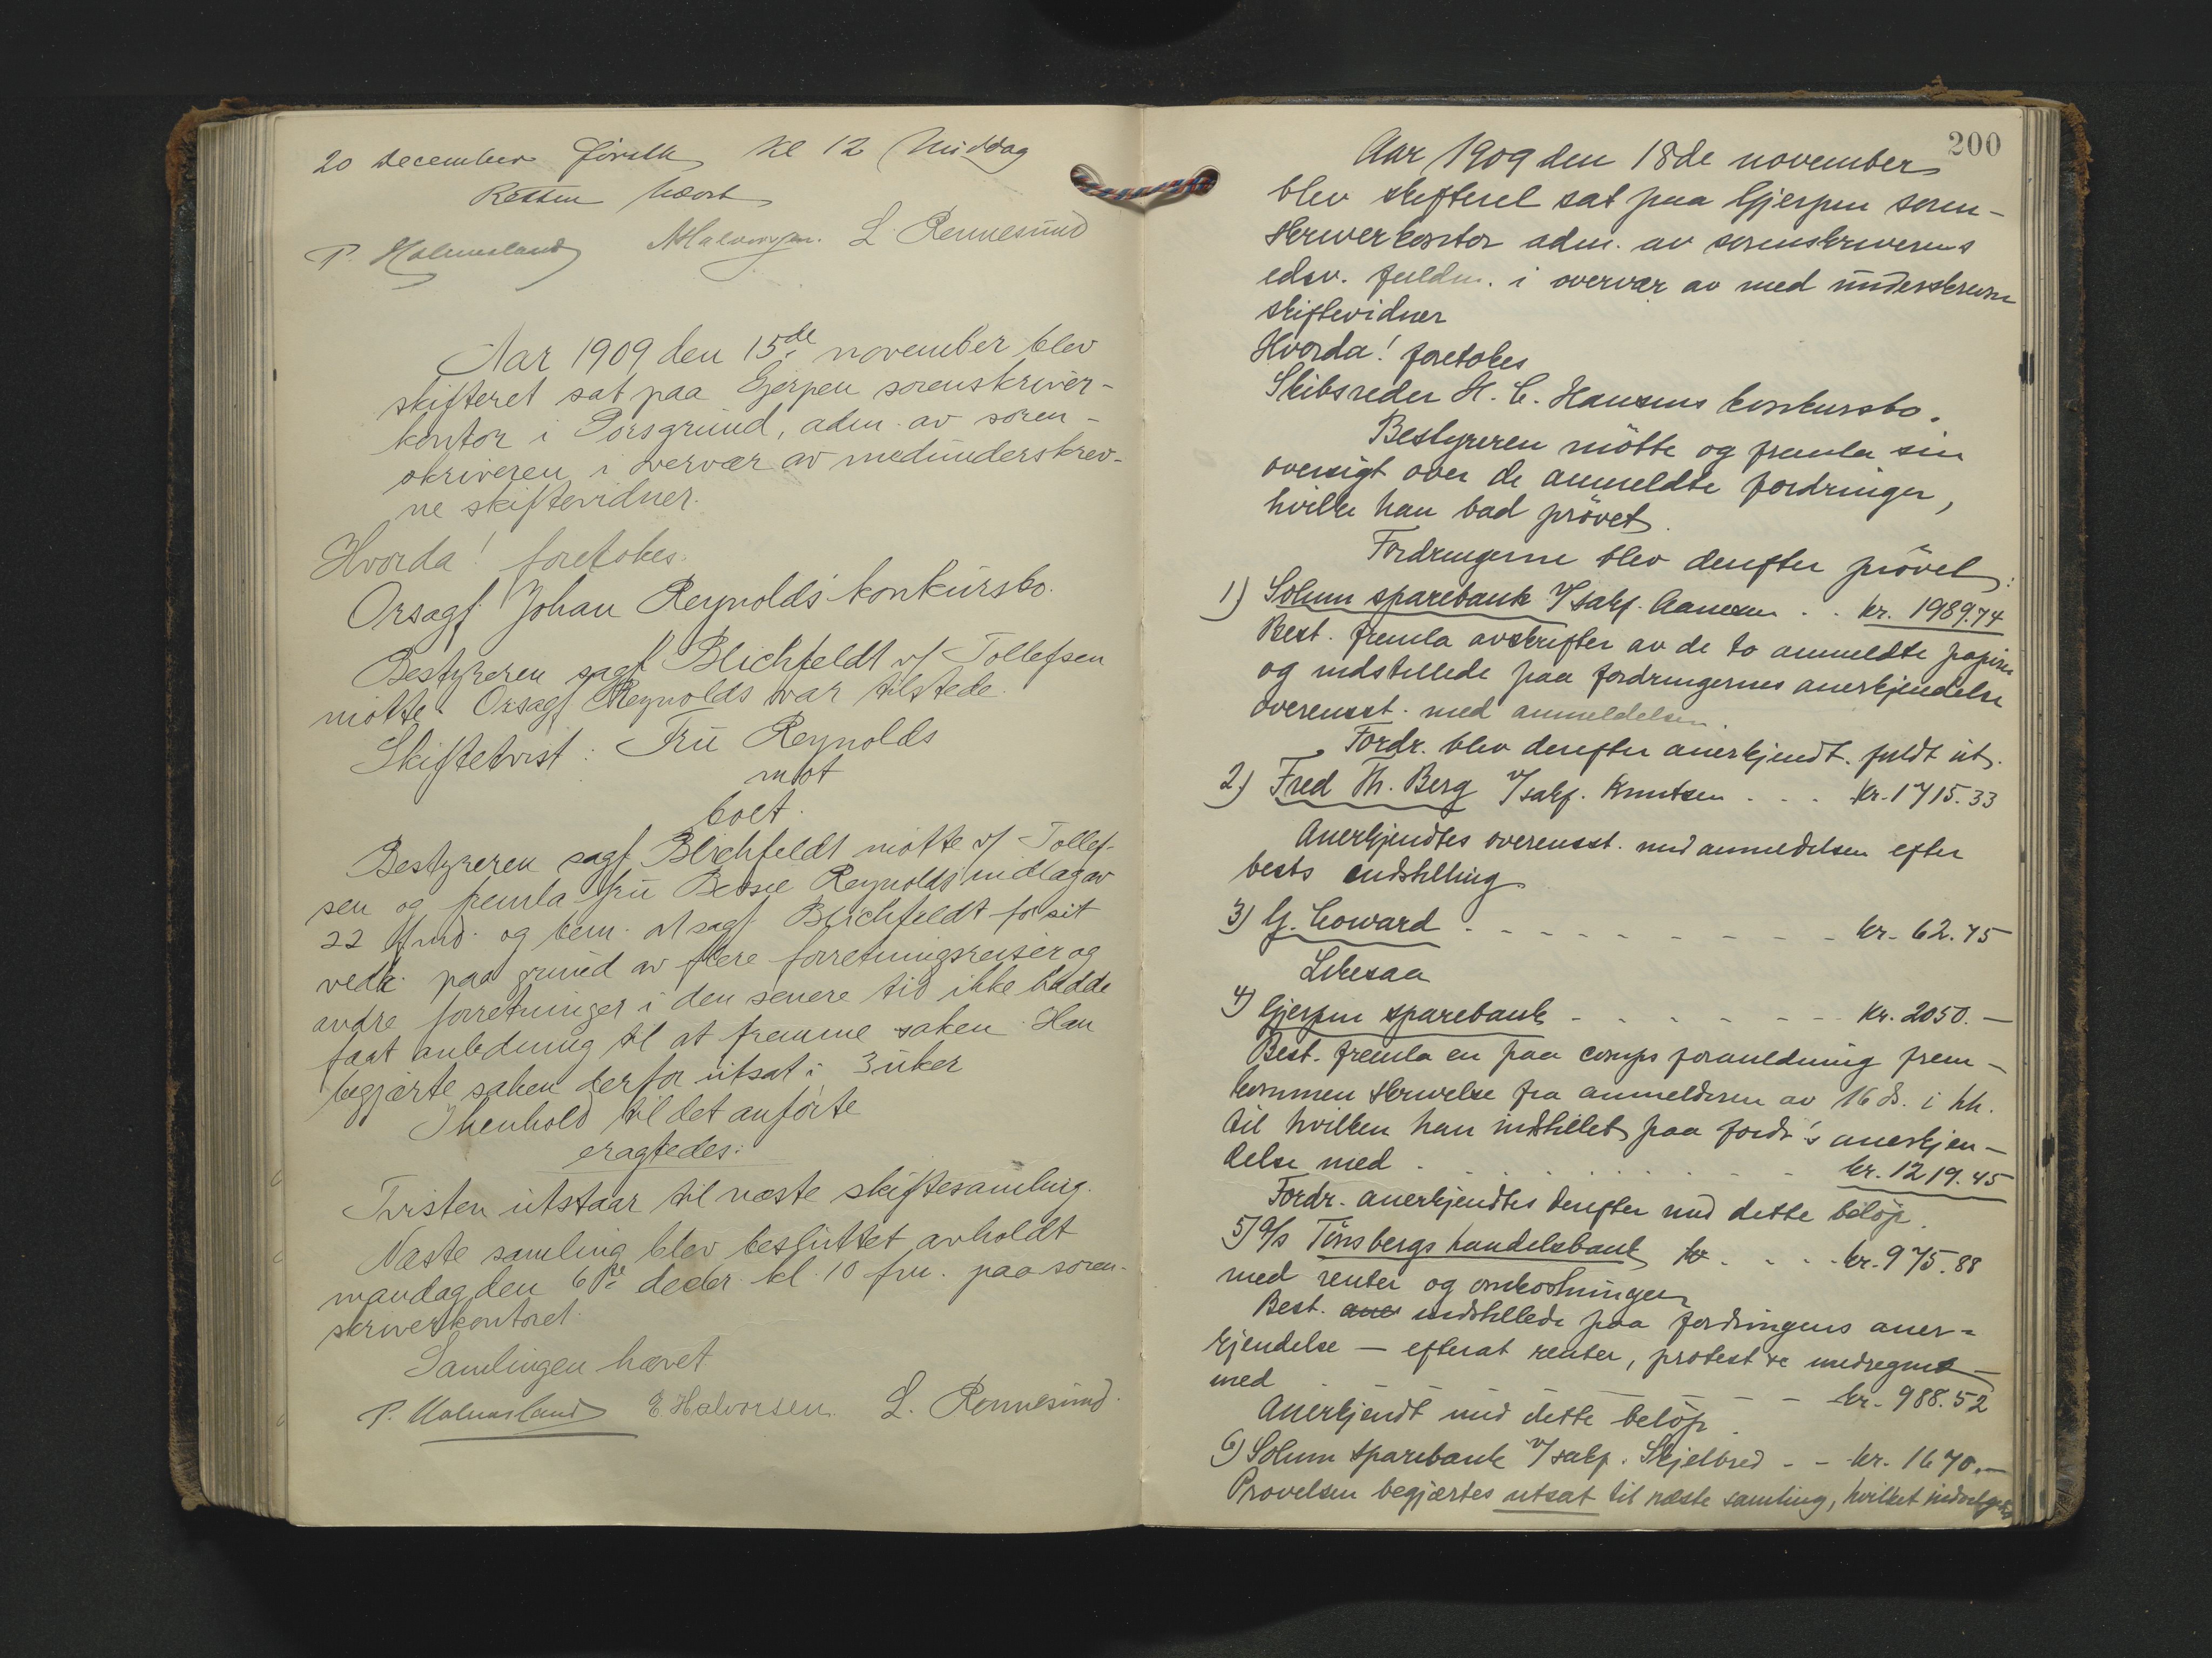 20 december førstk kl 12 middag
Retten hævet
P. Holmesland NHalvorsen. L. Rennesund
Aar 1909, den 15de november blev
skifteret sat paa Gjerpen sorenskriver-
kontor i Porsgrund, adm. av soren-
skriveren i overvær av medunderskrev-
ne skiftevidner.
Hvorda! foretokes:
Orsagf. Johan Reynolds' konkursbo.
Bestyreren sagf. Blichfeldt v/ Tollefsen
møtte. Orsagf. Reynolds var tilstede.
Skiftetvist: Fru Reynolds
mot
boet.
Bestyreren sagf. Blichfeldt møtte v/ Tollef-
sen og fremla fru Bessie Reynolds indlæg av
22 f.md. og bem. at sagf. Blichfeldt for sit
vedk. paa grund av flere forretningsreiser og
andre forretninger i den senere tid ikke hadde
faat anledning til at fremme saken. Han
begjærte saken derfor utsat i 3 uker
I henhold til det anførte
eragtedes:
Tvisten utstaar til næste skiftesamling.
Næste samling blev besluttet avholdt
mandag den 6te decbr. kl. 10 fm. paa soren-
skriverkontoret.
Samlingen hævet
P. Holmesland E Halvorsen. L. Rennesund.
200
Aar 1909 den 18de november
blev skifteret sat paa Gjerpen soren-
skriverkontor adm. av sorenskriverens
edsv. fuldm. i overvær av med underskrevne
skiftevidner
Hvorda! foretokes
Skibsreder H. C. Hansens konkursbo.
Bestyreren møtte og fremla sin
oversigt over de anmeldte fordringer,
hvilke han bad prøvet.
Fordringerne blev derefter prøvet:
1) Solum sparebank v/ sakf. Aanesen . . kr. 1989.74
Best. fremla avskrifter av de to anmeldte papirer
og indstillede paa fordringernes anerkjendelse
overensst. med anmeldelsen.
Fordr. blev derefter anerkjendt fuldt ut.
2) Fred Th. Berg v/ sakf. Knutsen . . . kr. 1715.33
Anerkjendtes overensst. med anmeldelsen efter
bests indstilling
3) G. Coward - - - - - - - - - - kr. 62.75
Likesaa
4) Gjerpen sparebank - - - - - - - kr. 2050.—
Best. fremla en paa comps foranledning frem-
kommen skrivelse fra anmelderen av 16 ds. i hh.
til hvilken han indstillet paa fordr's anerkjen-
delse med - - - - - - - - kr. 1219.45
Fordr. anerkjendtes derefter med dette beløp.
5) A/s Tønsbergs handelsbank kr . . . . kr. 975.88
med renter og omkostninger
Best. aner indstillede paa fordringens aner-
kjendelse — efterat renter, protest &c medregnet —
med - - - - - - kr. 988.52
Anerkjendt med dette beløp.
6) Solum sparebank v/ sakf. Skjelbred - - kr. 1670.—
Prøvelsen begjærtes utsat til næste samling, hvilket indvilgedes